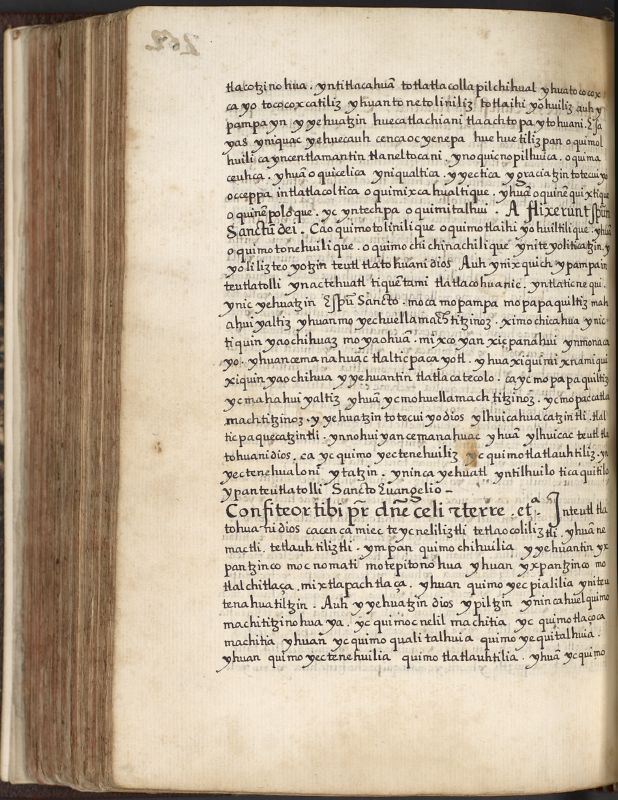 tlacotzinohua. yntitlacahuā totlatlacolla pilchihual yhuatococox
ca yo tococoxcatiliz yhuanto netoliniliz totlaihiyohuiliz auh y
pampa yn yyehuatzin huecatlachiani tlaachtopaytohuani. Esa
yas yniquac yehuecauh cencaoc yenepa huehuetilizpan oquimol
huili ca yncentlamantin tlaneltocani. ynoquicnopilhuica. oquima
ceuhca. yhuā oquicelica yniqualtica. yyectica ygraciatzin totecuiyo
occeppa intlatlacoltica oquimixcahualtique. yhuā oquinēquixtique
oquinēpoloque. yc yntechpa oquimitalhui. Aflixerunt spūm
Sanctū dei. Caoquimotolinilique oquimotlaihiyohuiltilique. yhuā
oquimotonehuilique. oquimochichinachilique ynite yolitiatzin. y
yoliliz teoyotzin teutl tlatohuani dios Auh ynixquich ypampa in
teutlatolli ynactehuatl tiquētami tlatlacohuanic. yntlaticnequi.
ynic yehuatzin Espū Sancto. moca mopampa mopapaquiltiz mah
ahuiyaltiz yhuanmo yechuellamachtitzinoz. ximochicahua ynic
tiquinyaochihuaz moyaohuā. mixcoyan xicpanahui ynmonaca
yo. yhuancemanahuac tlalticpacayotl. yhuaxiquimixnamiqui
xiquinyaochihua yyehuantin tlatlacatecolo. cayc mopapaquiltiz
ycmahahuiyaltiz yhuā ycmohuellamachtitzinoz. ycmopaccatla
machtitzinoz. yyehuatzin totecuiyodios ylhuicahuacatzintli. tlal
ticpaquecatzintli. ynnohuiyancemanahuac yhuā ylhuicac teutl tla
tohuani dios. ca yc quimoyectenehuiliz yc quimotlatlauhtiliz. yn
yectenehualoni ytatzin. ynincayehuatl yntilhuilo ticaquitilo
ypanteutlatolli Sancto Euangelio –
Confiteor tibi pr̄ dn̄e celi ⁊ terre. etᵃ. Inteutl tla
tohuani dios cacenca miec teycneliliztli tetlaocoliliztli. yhuā ne
mactli. tetlauhtiliztli. ympan quimochihuilia yyehuantin yx
pantzinco mocnomati motepitonohua yhuan yxpantzinco mo
tlalchitlaça. mixtlapachtlaça. yhuan quimoyecpialilia yniteu
tenahuatiltzin. Auh yyehuatzin dios ypiltzin ynincahuelquimo
machitzinohuaya. yc quimocnelilmachitia yc quimotlaçoca
machitia yhuan yc quimoqualitalhuia quimoyequitalhuia.
yhuan quimoyectenehuilia quimotlatlauhtilia. yhuā ycquimo